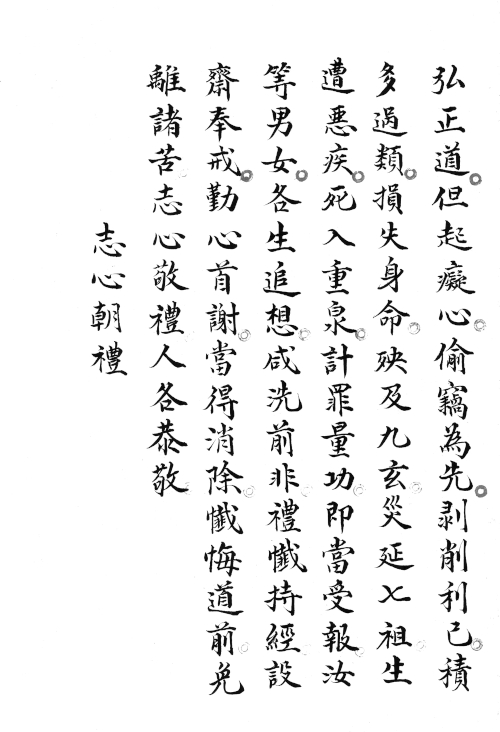 弘正道但起癡心偷竊為先剥削利己積
多過類損失身命殃及九玄災延七祖生
遭惡疾死入重泉計罪量功即當受報汝
等男女各生追想咸洗前非禮懺持經設
齋奉戒勤心首謝當得消除懺悔道前免
離諸苦志心敬禮人各恭敬
志心朝禮